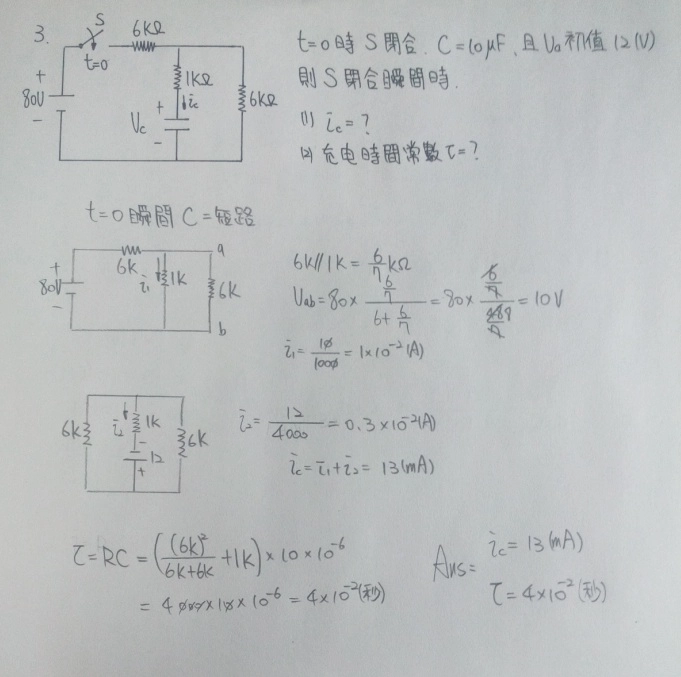 3.
S
t=0
6kΩ
1kΩ
ic
6kΩ
+
80V
-
Vc
+
-
t=0時 S 閉合. C=10μF, 且 Va 初值 12(V)
則 S 閉合瞬間時.
(1) ic=?
(2) 充电時間常數 τ=?
t=0瞬間 C=短路
+
80V
-
6k
i1
1k
6k
a
b
6k//1k = 6/7 kΩ
Uab=80× (6/7)/(6+6/7) = 80× (6/7)/(48/7) = 10V
i1= 10/1000 = 1×10⁻²(A)
6k
i2
1k
-
12
+
6k
i2= 12/4000 = 0.3×10⁻²(A)
ic= i1+i2= 13(mA)
τ=RC = ((6k)²/(6k+6k) +1k)×10×10⁻⁶
= 4000×10×10⁻⁶ = 4×10⁻²(秒)
Ans=
ic= 13(mA)
τ= 4×10⁻²(秒)